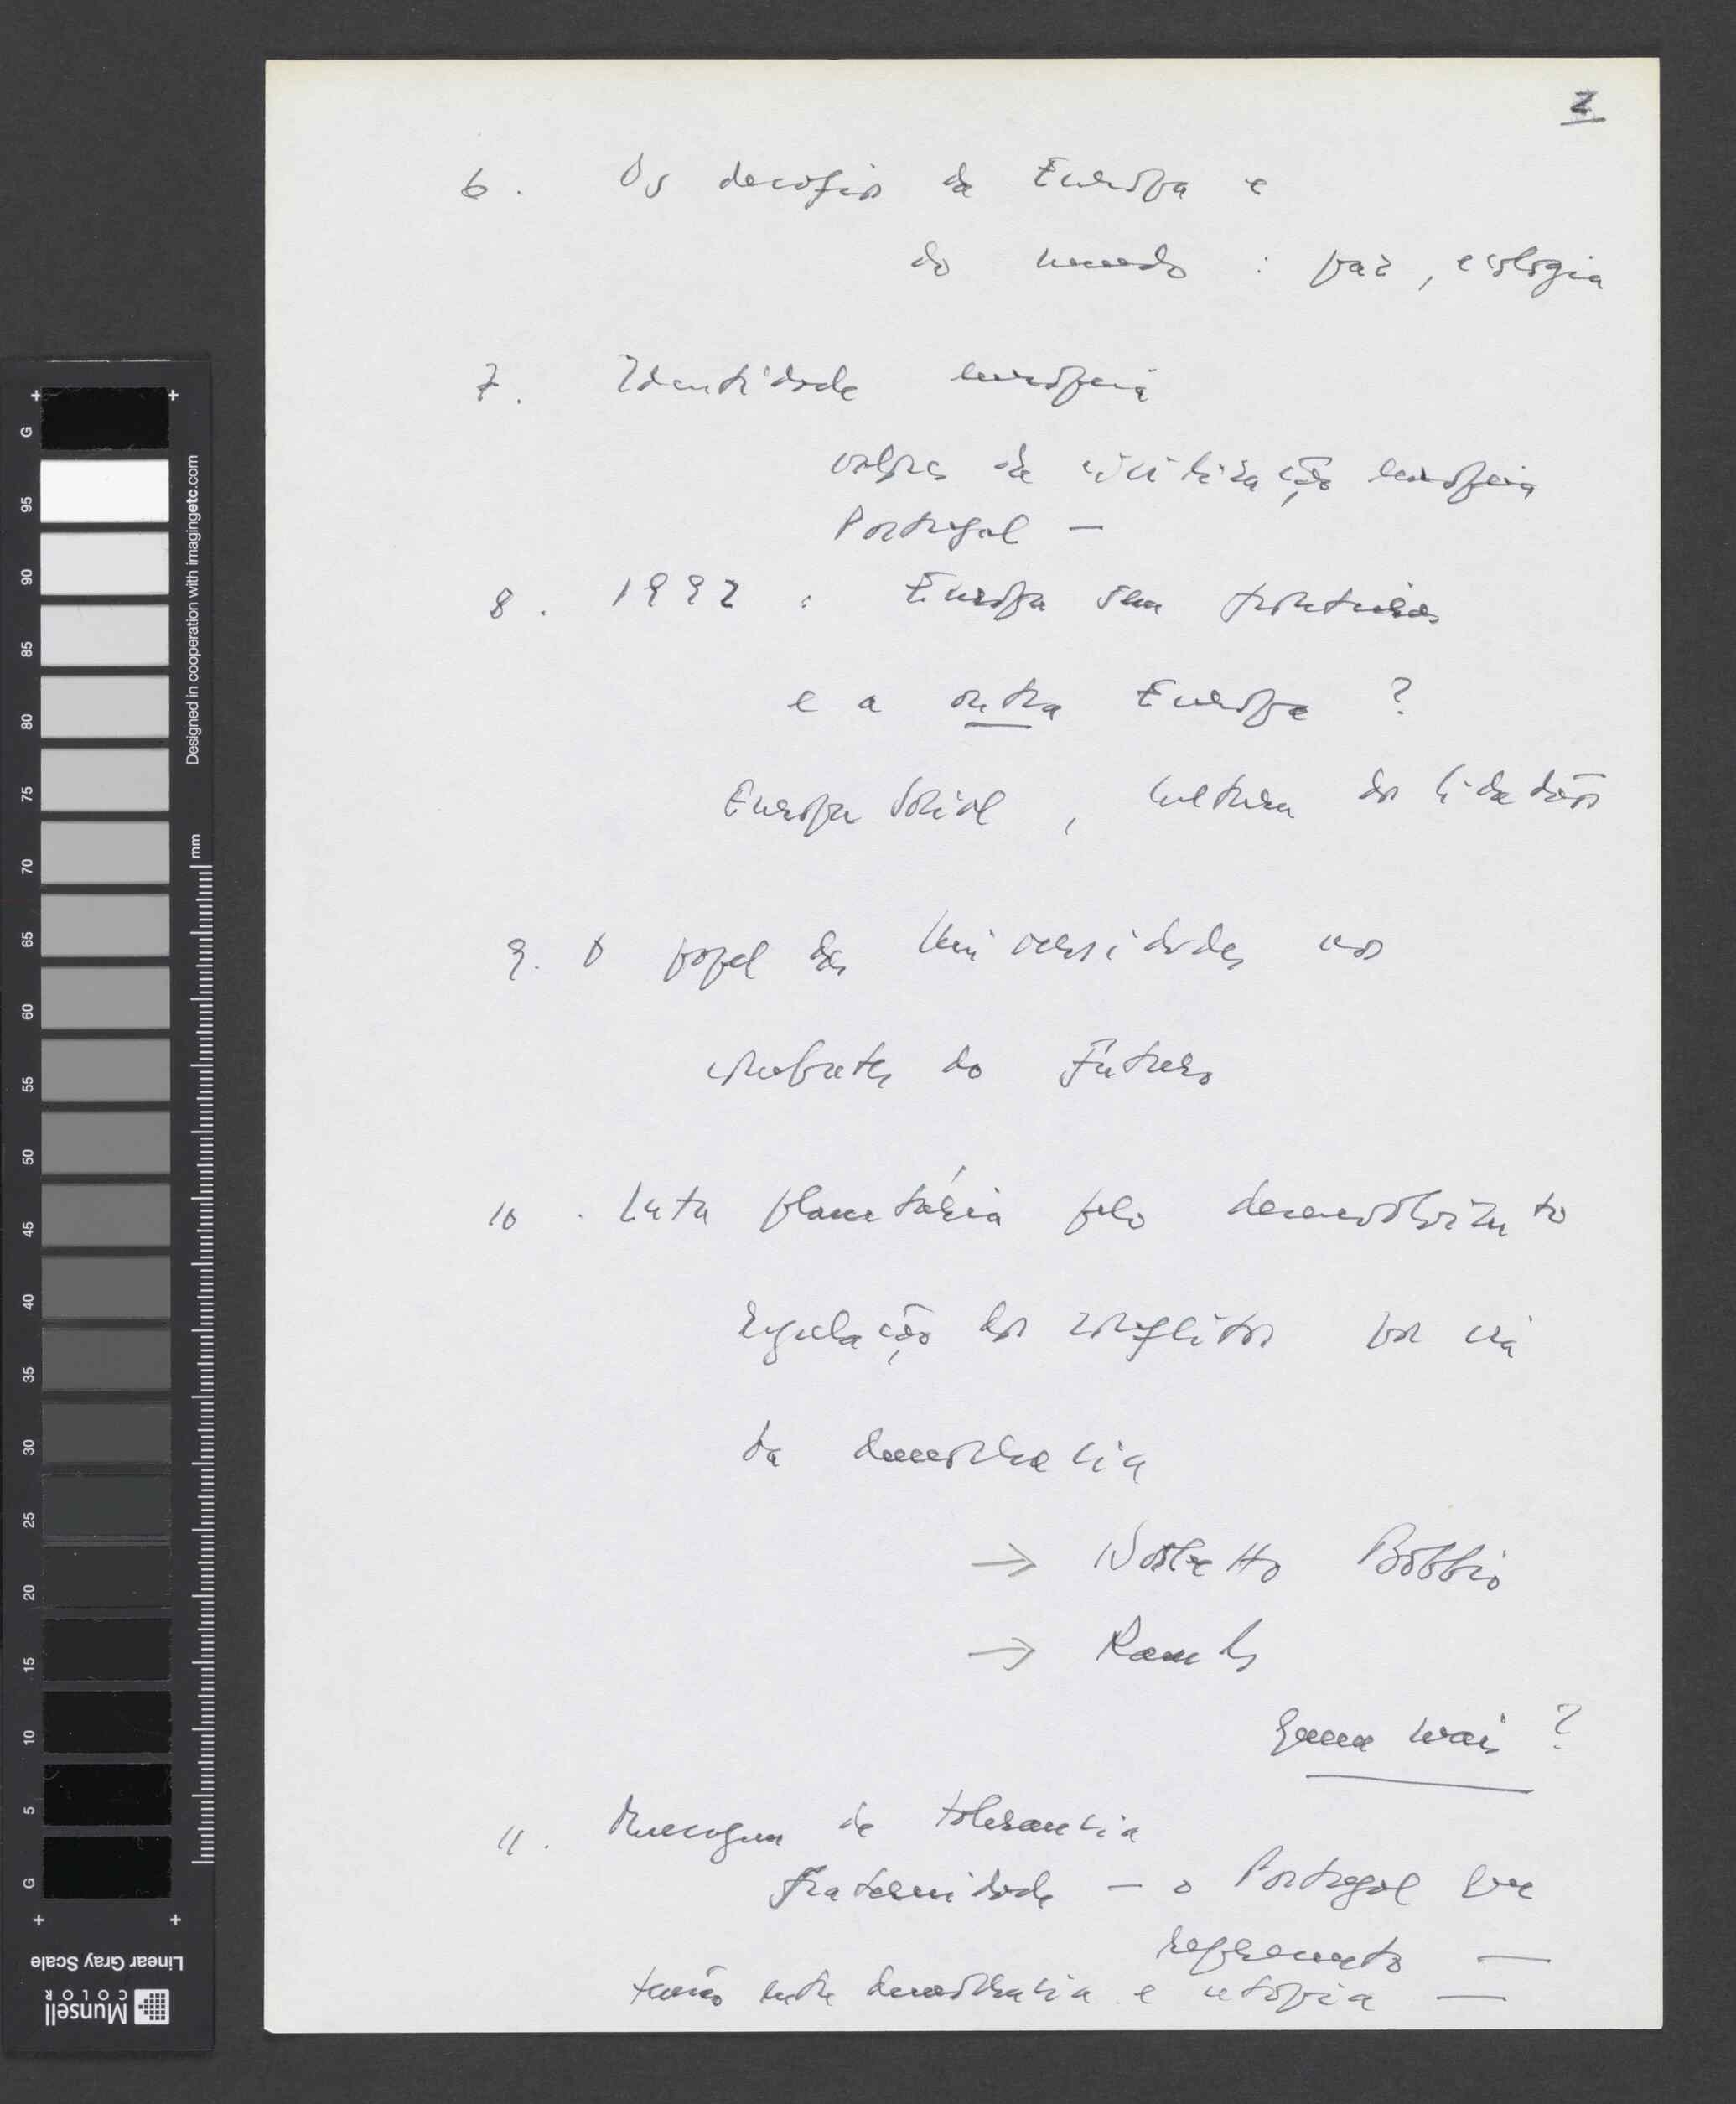 2
6. Os desafios da Europa e
do mundo : paz, ecologia
7. Identidade europeia
valores da civilização europeia
Portugal —
8. 1992 : Europa sem fronteiras
e a outra Europa ?
Europa Social, cultura dos cidadãos
9. O papel das Universidades nos
combates do Futuro
10. Luta planetária pelo desenvolvimento
regulação dos conflitos por via
da democracia
→ Norberto Bobbio
→ Rawls
Quem mais ?
11. Mensagem de tolerancia
fraternidade — o Portugal que
represento —
tensão entre democracia e utopia —
G
95
90
85
80
75
70
65
60
55
50
45
40
35
30
25
20
15
10
5
G
Designed in cooperation with imagingetc.com
mm
Linear Gray Scale
Munsell
COLOR